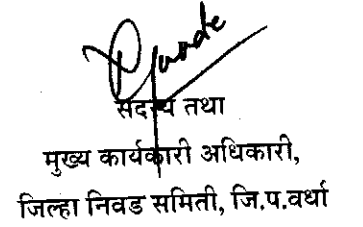 सदस्य तथा
मुख्य कार्यकारी अधिकारी,
जिल्हा निवड समिती, जि.प.वर्धा